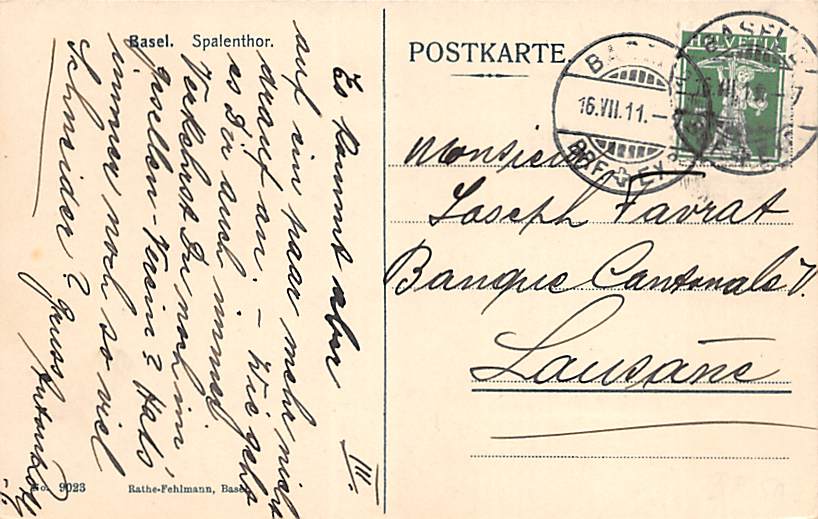 Basel. Spalenthor.
POSTKARTE.
HELVETIA
BASEL
16.VII.11.-7
BRF. EX
16.VII.11.-7
III.
Es kommt aber
auf ein paar mehr nicht
drauf an. – Wie geht
es Dir auch immer
Verkehrst Du noch im
gesellen-Verein? Habs
immer noch so viel
Schneider?
Gruss
Monsieur
Joseph Favrat
Banque Cantonale V.
Lausanne
No. 9023
Rathe-Fehlmann, Basel